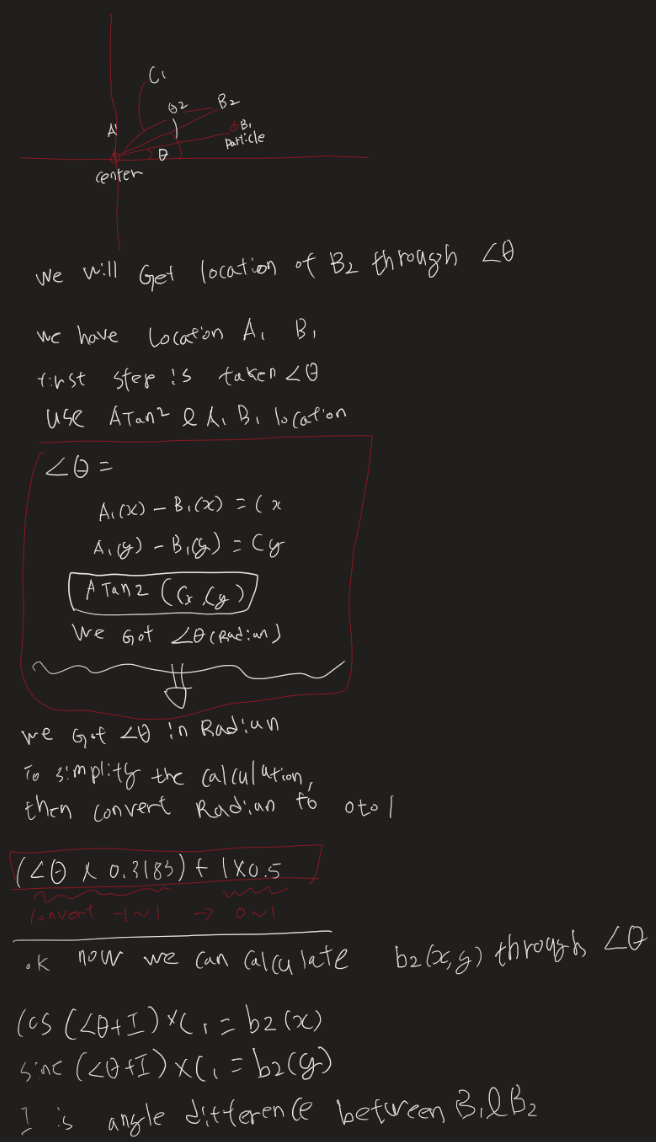 C1
θ2
B2
A1
B1
Particle
θ
center
we will Get location of B2 through ∠θ
we have Location A1 B1
first step is taken ∠θ
USE ATan2 & A1 B1 location
∠θ =
A1(x) - B1(x) = Cx
A1(y) - B1(y) = Cy
ATan2 (Cx, Cy)
We Got ∠θ(Radian)
we Got ∠θ in Radian
To simplify the calculation,
then convert Radian to 0to1
(∠θ x 0.3183) + 1x0.5
Convert -1~1 → 0~1
ok now we can calculate b2(x,y) through ∠θ
Cos (∠θ+I) x C1 = b2(x)
sine (∠θ+I) x C1 = b2(y)
I is angle difference between B1 & B2